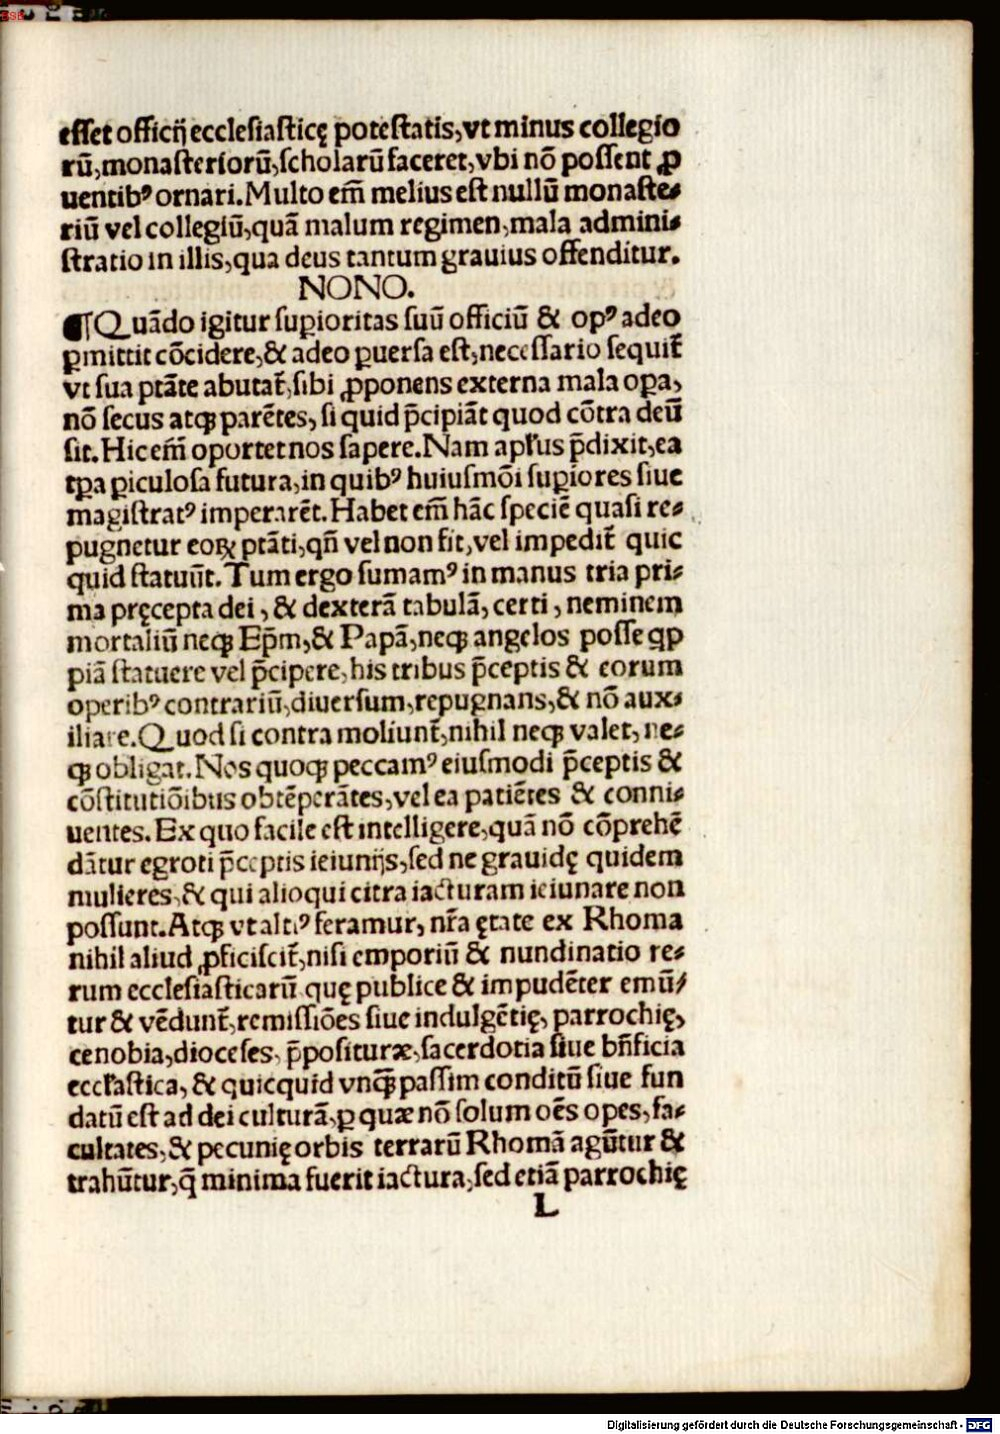 eſſet officij eccleſiaſticę poteſtatis, vt minus collegio
rū, monaſteriorū, ſcholarū faceret, vbi nō poſſent ꝓ
uentibꝰ ornari. Multo em̄ melius eſt nullū monaſte⸗
riū vel collegiū, quā malum regimen, mala admini⸗
ſtratio in illis, qua deus tantum grauius offenditur.
NONO.
¶ Quādo igitur ſuꝑioritas ſuū officiū & opꝰ adeo
ꝑmittit cōcidere, & adeo ꝑuerſa eſt, neceſſario ſequit̄
vt ſua ptāte abutat̄, ſibi ꝓponens externa mala oꝑa,
nō ſecus atqꝫ parētes, ſi quid p̄cipiāt quod cōtra deū
ſit. Hic em̄ oportet nos ſapere. Nam apl'us p̄dixit, ea
tꝑa ꝑiculoſa futura, in quibꝰ huiuſmōi ſuꝑiores ſiue
magiſtratꝰ imperarēt. Habet em̄ hāc ſpeciē quaſi re⸗
pugnetur eoꝝ ptāti, qn̄ vel non fit, vel impedit̄ quic
quid ſtatuūt. Tum ergo ſumamꝰ in manus tria pri⸗
ma pręcepta dei, & dexterā tabulā, certi, neminem
mortaliū neqꝫ Ep̄m, & Papā, neqꝫ angelos poſſe qꝑ
piā ſtatuere vel p̄cipere, his tribus p̄ceptis & eorum
operibꝰ contrariū, diuerſum, repugnans, & nō aux⸗
iliare. Quod ſi contra moliunt̄, nihil neqꝫ valet, ne⸗
qꝫ obligat. Nos quoqꝫ peccamꝰ eiuſmodi p̄ceptis &
cōſtitutiōibus obtēperātes, vel ea patiētes & conni⸗
uentes. Ex quo facile eſt intelligere, quā nō cōprehē
dātur egroti p̄ceptis ieiunijs, ſed ne grauidę quidem
mulieres, & qui alioqui citra iacturam ieiunare non
poſſunt. Atqꝫ vt altiꝰ feramur, nr̄a ętate ex Rhoma
nihil aliud ꝓficiſcit̄, niſi emporiū & nundinatio re⸗
rum eccleſiaſticarū quę publice & impudēter emū⸗
tur & vēdunt̄, remiſſiōes ſiue indulgētię, parrochię,
cenobia, dioceſes, p̄poſituræ, ſacerdotia ſiue bn̄ficia
eccl'aſtica, & quicquid vnqꝫ̄ paſſim conditū ſiue fun
datū eſt ad dei culturā, ꝑ quæ nō ſolum oēs opes, fa⸗
cultates, & pecunię orbis terrarū Rhomā agūtur &
trahūtur, q̄ minima fuerit iactura, ſed etiā parrochię
L
Digitalisierung gefördert durch die Deutsche Forschungsgemeinschaft - DFG